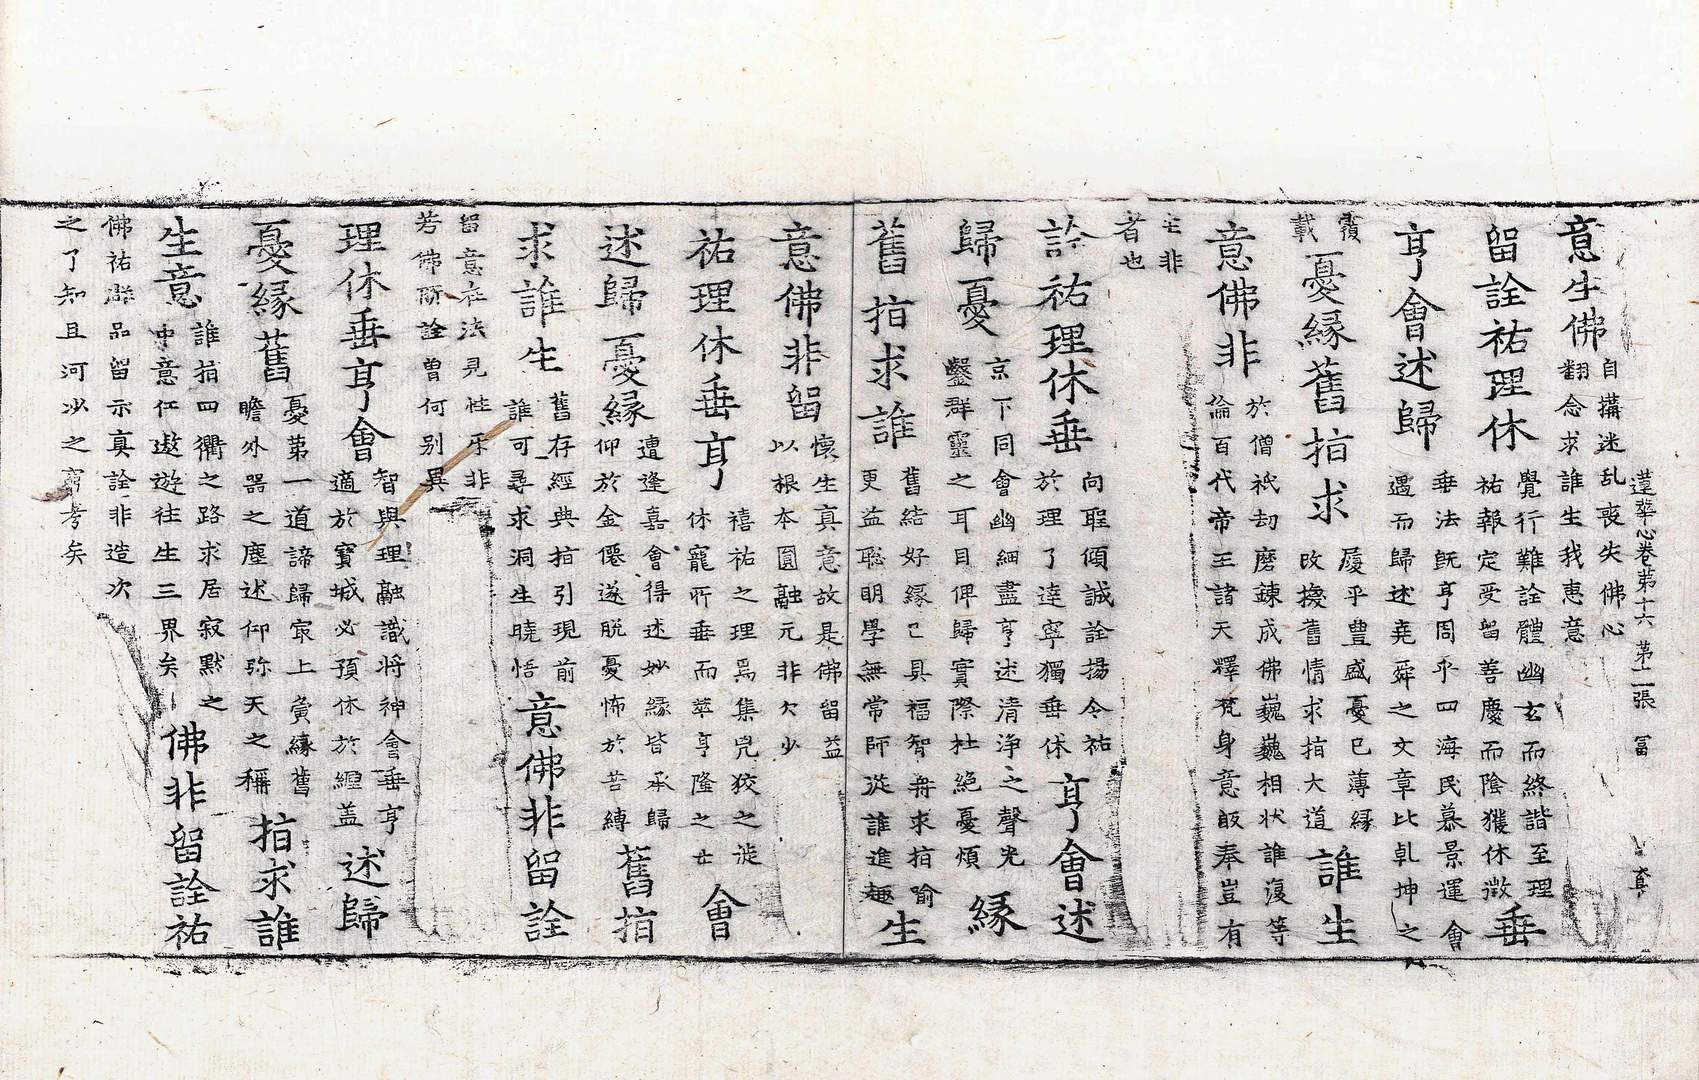 蓮華心卷第十六 第二張 冨 真
意生佛
自搆迷乱喪失佛心
翻念求誰生我惠意
留詮祐理休
覺行難詮體幽玄而終諧至理
祐報定受留善慶而陰獲休徴
垂
亨會述歸
垂法旣亨周乎四海民慕景運會
遇而歸述堯舜之文章比乹坤之
覆
載
憂縁舊指求
履乎豊盛憂已薄縁
改擾舊情求指大道
誰生
意佛非
於僧祇刼磨錬成佛巍巍相状誰復等
論百代帝王諸天釋梵身意皈奉豈有
生非
者也
詮祐理休垂
向聖傾誠詮揚令祐
於理了達寧獨垂休
亨會述
歸憂
京下同會幽細盡亨述清浄之聲光
鑿群靈之耳目俾歸實際杜絶憂煩
縁
舊指求誰
舊結好縁已具福智毎求指喻
更益聡明學無常師從誰進趣
生
意佛非留
懷生真意故是佛留益
以根本圓融元非欠少
祐理休垂亨
禧祐之理焉集兇狡之徙
休寵所垂而萃亨隆之世
會
述歸憂縁
遭逢嘉會得述妙縁皆承歸
仰於金僊遂脱憂怖於苦縛
舊指
求誰生
舊存經典指引現前
誰可尋求洞生曉悟
意佛非留詮
留意在法見性牙非
若佛所詮曽何别異
理休垂亨會
智與理融識將神會垂亨
適於寳城必預休於纒盖
述歸
憂縁舊
憂第一道諦歸㝡上負縁舊
瞻外器之塵述仰弥天之稱
指求誰
生意
誰指四衢之路求居寂默之
中意仁遨遊往生三界矣
佛非留詮祐
佛祐群品留示真詮非造次
之了知且河沙之窮考矣